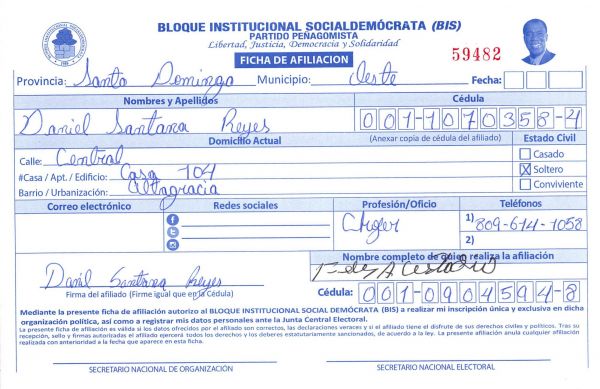 BLOQUE INSTITUCIONAL SOCIALDEMÓCRATA (BIS)
PARTIDO PEÑAGOMISTA
Libertad, Justicia, Democracia y Solidaridad
FICHA DE AFILIACION
59482
Provincia: Santo Domingo Municipio: Oeste Fecha:
Nombres y Apellidos Cédula
Daniel Santana Reyes 001-1070358-4
Domicilio Actual (Anexar copia de cédula del afiliado) Estado Civil
Calle: Central Casado
#Casa / Apt. / Edificio: Casa 104 X Soltero
Barrio / Urbanización: Altagracia Conviviente
Correo electrónico Redes sociales Profesión/Oficio Teléfonos
Chofer 1) 809-614-1058
2)
Nombre completo de quien realiza la afiliación
Daniel Santana Reyes
Firma del afiliado (Firme igual que en la Cédula) Cédula: 001-0904594-8
Mediante la presente ficha de afiliación autorizo al BLOQUE INSTITUCIONAL SOCIAL DEMÓCRATA (BIS) a realizar mi inscripción única y exclusiva en dicha
organización política, así como a registrar mis datos personales ante la Junta Central Electoral.
La presente ficha de afiliación es válida si los datos ofrecidos por el afiliado son correctos, las declaraciones veraces y si el afiliado tiene el disfrute de sus derechos civiles y políticos. Tras su
recepción, sello y firmas autorizadas el afiliado ejercerá todos los derechos y los deberes estatutariamente sancionados, de acuerdo a la ley. La presente afiliación anula cualquier afiliación
realizada con anterioridad a la fecha que aparece en esta ficha.
SECRETARIO NACIONAL DE ORGANIZACIÓN SECRETARIO NACIONAL ELECTORAL